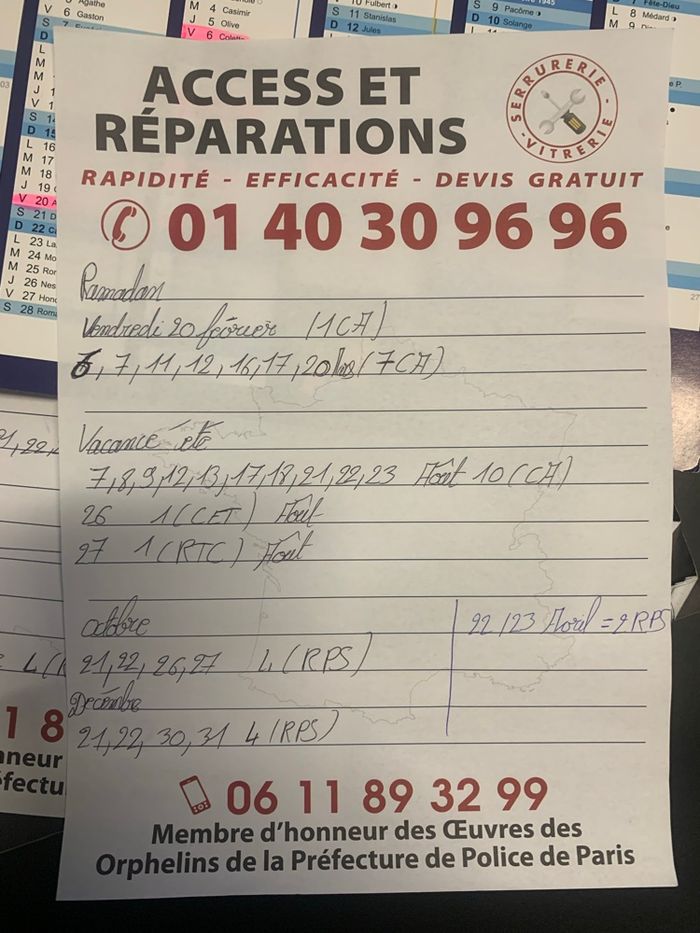 Agathe
V 6 Gaston
M 4 Casimir
J 5 Olive
V 6
10 Fulbert
S 11 Stanislas
D 12 Jules
S 9 Pacôme
D 10 Solange
Fête-Dieu
L 8 Médard
M 9
S 14
D 15
L 16
M 17
M 18
J 19
V 20
S 21
D 22
L 23
M 24
M 25
J 26
V 27
S 28
ACCESS ET
RÉPARATIONS
SERRURERIE - VITRERIE -
RAPIDITÉ - EFFICACITÉ - DEVIS GRATUIT
01 40 30 96 96
Ramadan
Vendredi 20 février (1CA)
6, 7, 11, 12, 16, 17, 20 (7CA)
Vacance été
7,8,9,12,13,17,18,21,22,23 Août 10 (CA)
26 1 (CET) Août
27 1 (RTC) Août
octobre
22/23 Avril = 2 RPS
21,22,26,27 4 (RPS)
Décembre
21,22, 30,31 4 (RPS)
06 11 89 32 99
Membre d'honneur des Œuvres des
Orphelins de la Préfecture de Police de Paris